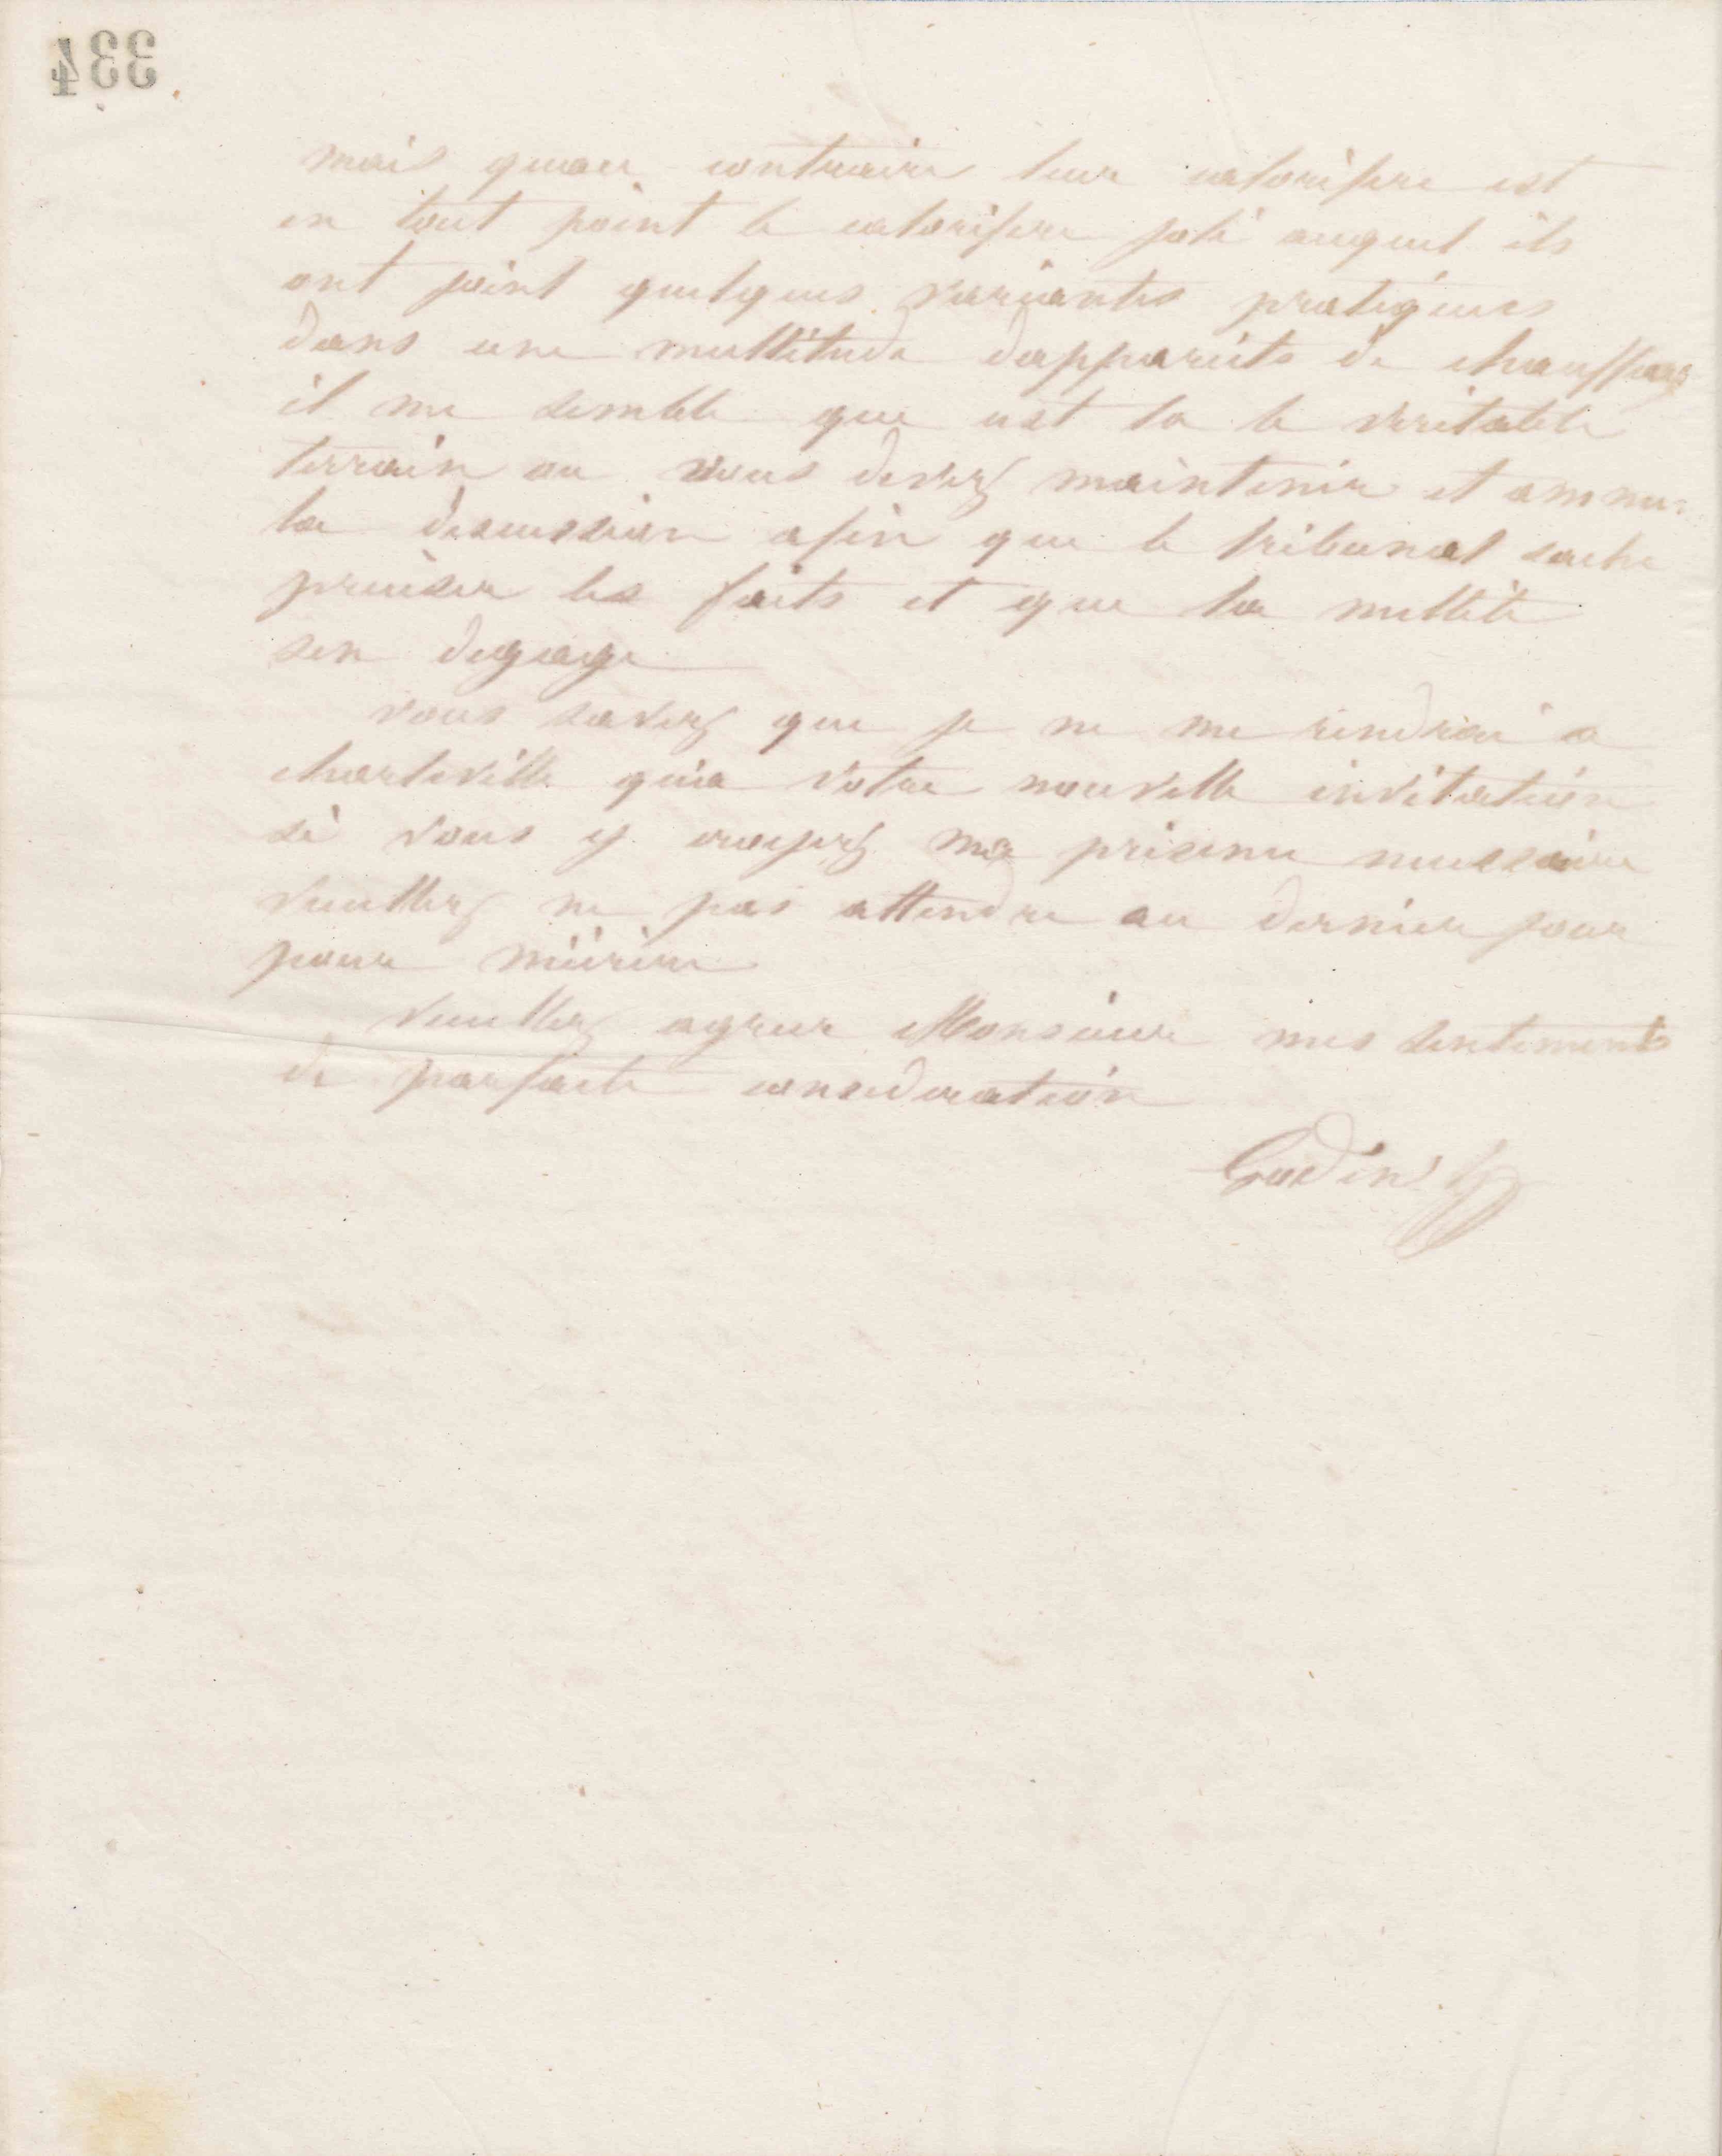 334
mais quau contraire leur calorifere est
en tout point le calorifere joli auquel ils
ont joint quelques variantes pratiques
dans une multitude dappareils de chauffage
il me semble que cest la le veritable
terrain ou vous devez maintenir et amener
la discussion afin que le tribunal sache
preciser les faits et que la nullité
sen degage
vous savez que je ne me rendrai a
charleville qua votre nouvelle invitation
si vous y croyez ma presence necessaire
veuillez ne pas attendre au dernier jour
pour mécrire
veuillez agreer Monsieur mes sentiments
de parfaite consideration
Godin